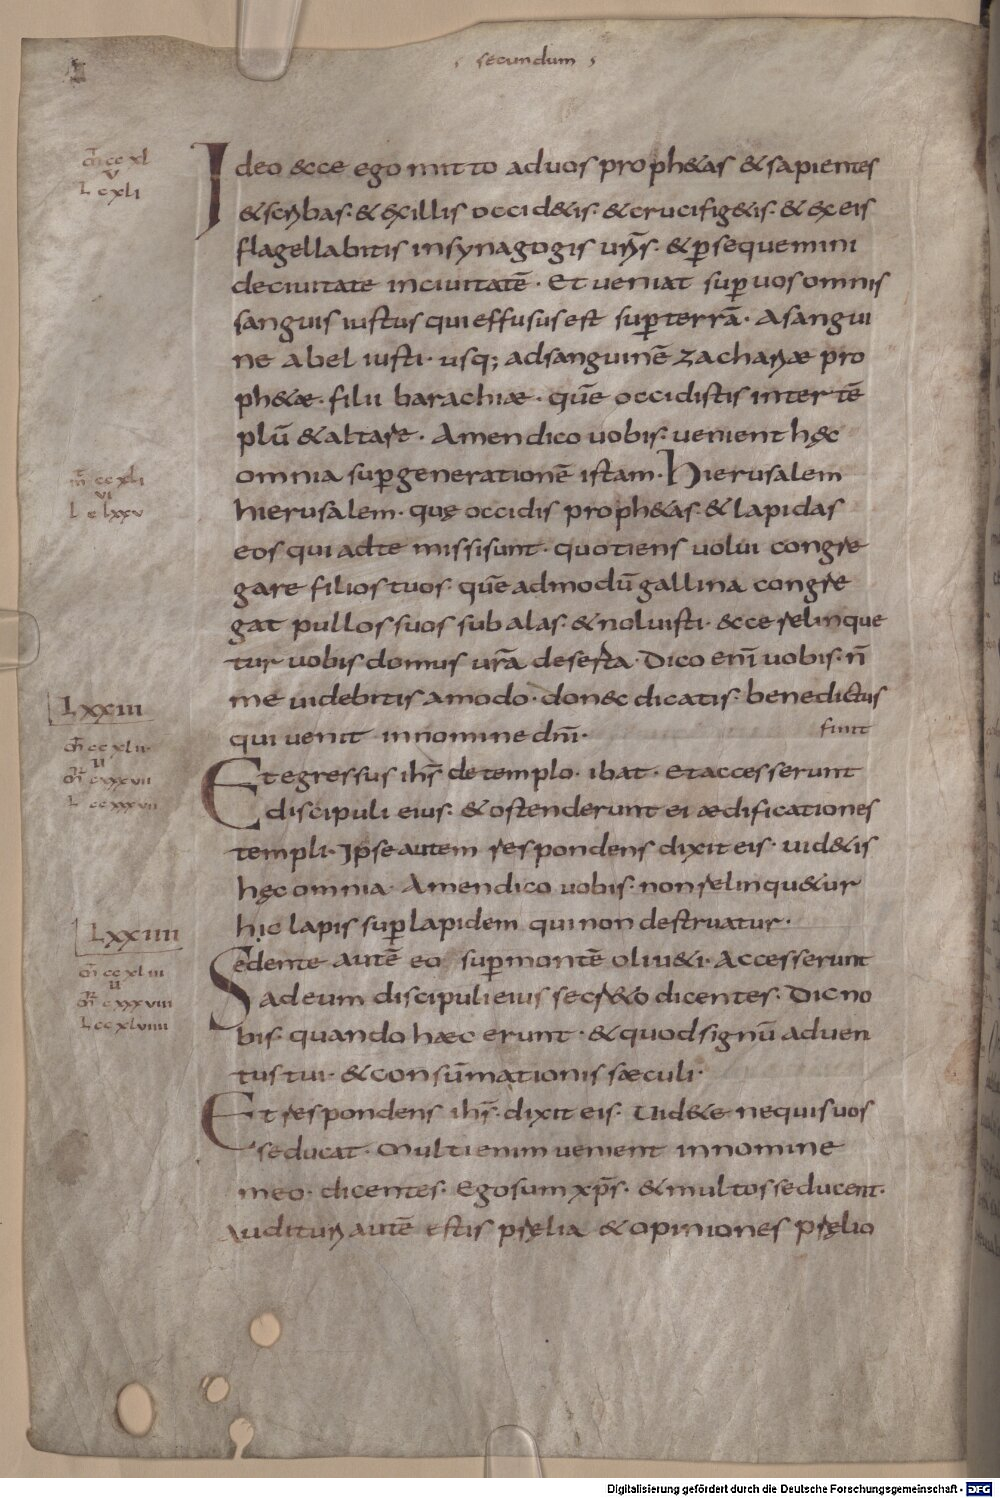 secundum
m̅ ccxl
v
L cxli
Ideo & ecce ego mitto ad uos proph&as & sapientes
& scribas· & ex illis occid&is· & crucifig&is· & ex eis
flagellabitis in synagogis ur̅is· & p̲sequemini
de ciuitate in ciuitate̅· Et ueniat sup̲ uos omnis
sanguis iustus qui effusus est sup̲ terra̅· A sangui
ne abel iusti· usq; ad sanguine̅ zachariæ pro
ph&æ· filii barachiæ· que̅ occidistis inter te̅
plu̅ & altare· Amen dico uobis· uenient hęc
m̅ ccxli
vi
L clxxv
omnia sup̲ generatione̅ istam· Hierusalem
hierusalem· quę occidis proph&as· & lapidas
eos qui ad te missi sunt· quotiens uolui congre
gare filios tuos· que̅admodu̅ gallina congre
gat pullos suos sub alas· & noluisti· Ecce relinque
tur uobis domus ur̅a deserta· Dico eni̅ uobis· n̅
LXXIII
me uidebitis amodo· donec dicatis· benedictus
qui uenit in nomine dn̅i·
finit
m̅ ccxlii
ui
m̅r cxxxvii
L ccxxxvii
Et egressus ihs̅ de templo· ibat· Et accesserunt
discipuli eius· & ostenderunt ei ædificationes
templi· Ipse autem respondens dixit eis· uid&is
hęc omnia· Amen dico uobis· non relinqu&ur
hic lapis sup̲ lapidem qui non destruatur·
LXXIIII
m̅ ccxliii
ui
m̅r cxxxviii
L ccxlviiii
Sedente aute̅ eo sup̲ monte̅ oliu&i· Accesserunt
ad eum discipuli eius secr&o dicentes· Dic no
bis· quando hæc erunt· & quod signu̅ aduen
tus tui· & consu̅mationis sæculi·
Et respondens ihs̅· dixit eis· Uid&e ne quis uos
seducat· Multi enim uenient in nomine
meo· dicentes· Ego sum xp̅s· & multos seducent·
Audituri aute̅ estis pręlia & opiniones pręlio
Digitalisierung gefördert durch die Deutsche Forschungsgemeinschaft - DFG